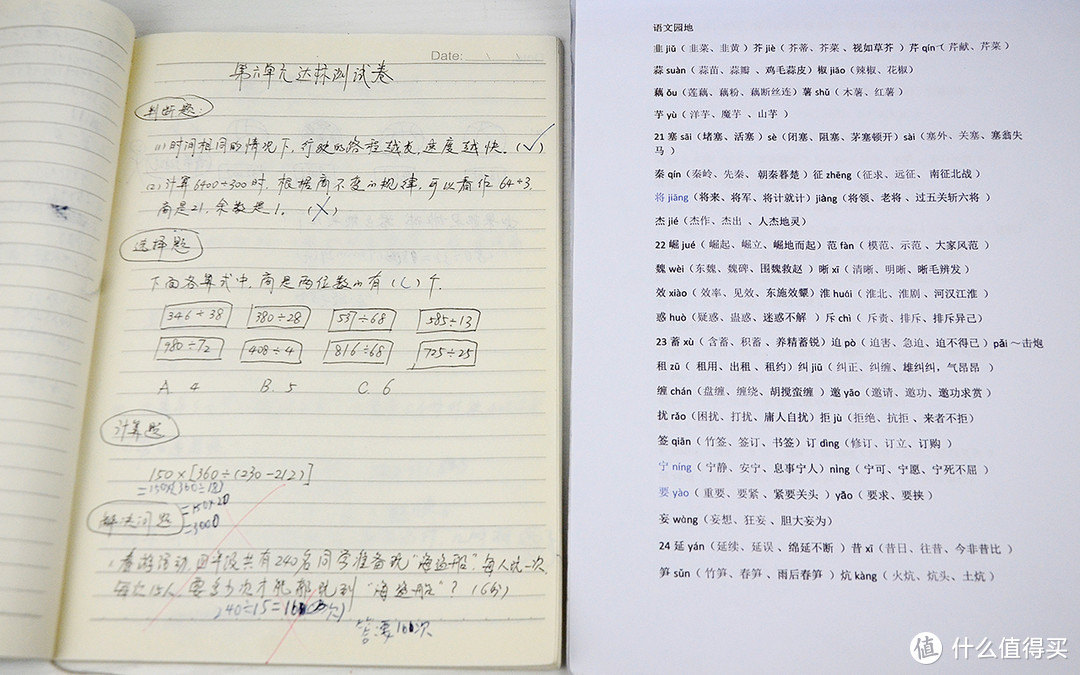 Date:
第六单元达标测试卷
判断题
(1)时间相同的情况下,行驶的路程越长,速度越快。(√)
(2)计算6400÷300时,根据商不变的规律,可以看作64÷3,
商是21,余数是1。(X)
选择题
下面各算式中,商是两位数的有(C)个
346÷38 380÷28 537÷68 585÷13
980÷72 408÷4 816÷68 725÷25
A. 4 B. 5 C. 6
计算题
150×[360÷(230-212)]
=150×[360÷18]
=150×20
=3000
解决问题
1.春游活动,四年级共有240名同学准备玩"海盗船",每人玩一次,
每次15人,要多少次才能都玩到"海盗船"?(6分)
240÷15=16(次)
答:要16次
语文园地
韭 jiǔ（韭菜、韭黄）芥 jiè（芥蒂、芥菜、视如草芥）芹 qín（芹献、芹菜）
蒜 suàn（蒜苗、蒜瓣、鸡毛蒜皮）椒 jiāo（辣椒、花椒）
藕 ǒu（莲藕、藕粉、藕断丝连）薯 shǔ（木薯、红薯）
芋 yù（洋芋、魔芋、山芋）
21 塞 sāi（堵塞、活塞）sè（闭塞、阻塞、茅塞顿开）sài（塞外、关塞、塞翁失
马）
秦 qín（秦岭、先秦、朝秦暮楚）征 zhēng（征求、远征、南征北战）
将 jiāng（将来、将军、将计就计）jiàng（将领、老将、过五关斩六将）
杰 jié（杰作、杰出、人杰地灵）
22 崛 jué（崛起、崛立、崛地而起）范 fàn（模范、示范、大家风范）
魏 wèi（东魏、魏碑、围魏救赵）晰 xī（清晰、明晰、晰毛辨发）
效 xiào（效率、见效、东施效颦）淮 huái（淮北、淮剧、河汉江淮）
惑 huò（疑惑、蛊惑、迷惑不解）斥 chì（斥责、排斥、排斥异己）
23 蓄 xù（含蓄、积蓄、养精蓄锐）迫 pò（迫害、急迫、迫不得已）pǎi～击炮
租 zū（租用、出租、租约）纠 jiū（纠正、纠缠、雄纠纠，气昂昂）
缠 chán（盘缠、缠绕、胡搅蛮缠）邀 yāo（邀请、邀功、邀功求赏）
扰 rǎo（困扰、打扰、庸人自扰）拒 jù（拒绝、抗拒、来者不拒）
签 qiān（竹签、签订、书签）订 dìng（修订、订立、订购）
宁 níng（宁静、安宁、息事宁人）nìng（宁可、宁愿、宁死不屈）
要 yào（重要、要紧、紧要关头）yāo（要求、要挟）
妄 wàng（妄想、狂妄、胆大妄为）
24 延 yán（延续、延误、绵延不断）昔 xī（昔日、往昔、今非昔比）
笋 sǔn（竹笋、春笋、雨后春笋）炕 kàng（火炕、炕头、土炕）
值 什么值得买